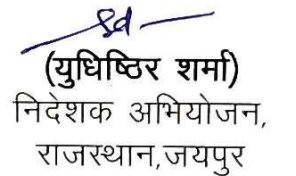 Sd-
(युधिष्ठिर शर्मा)
निदेशक अभियोजन,
राजस्थान,जयपुर